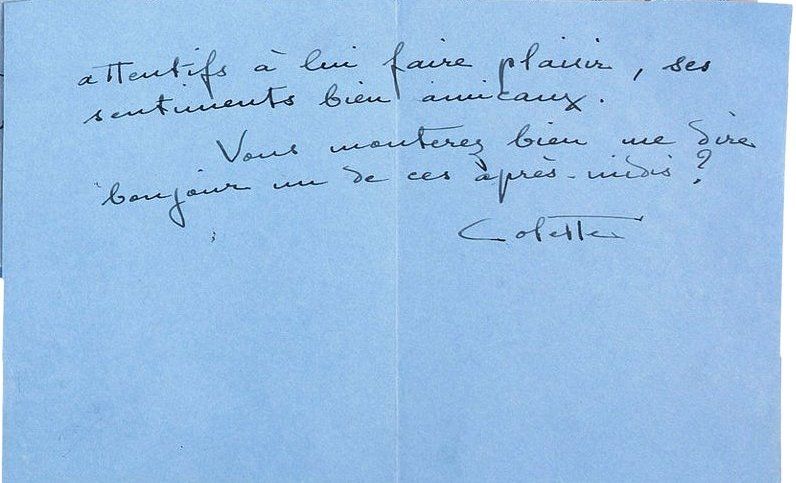 attentifs à lui faire plaisir, ses
sentiments bien amicaux.
Vous monterez bien me dire
bonjour un de ces après-midis ?
Colette